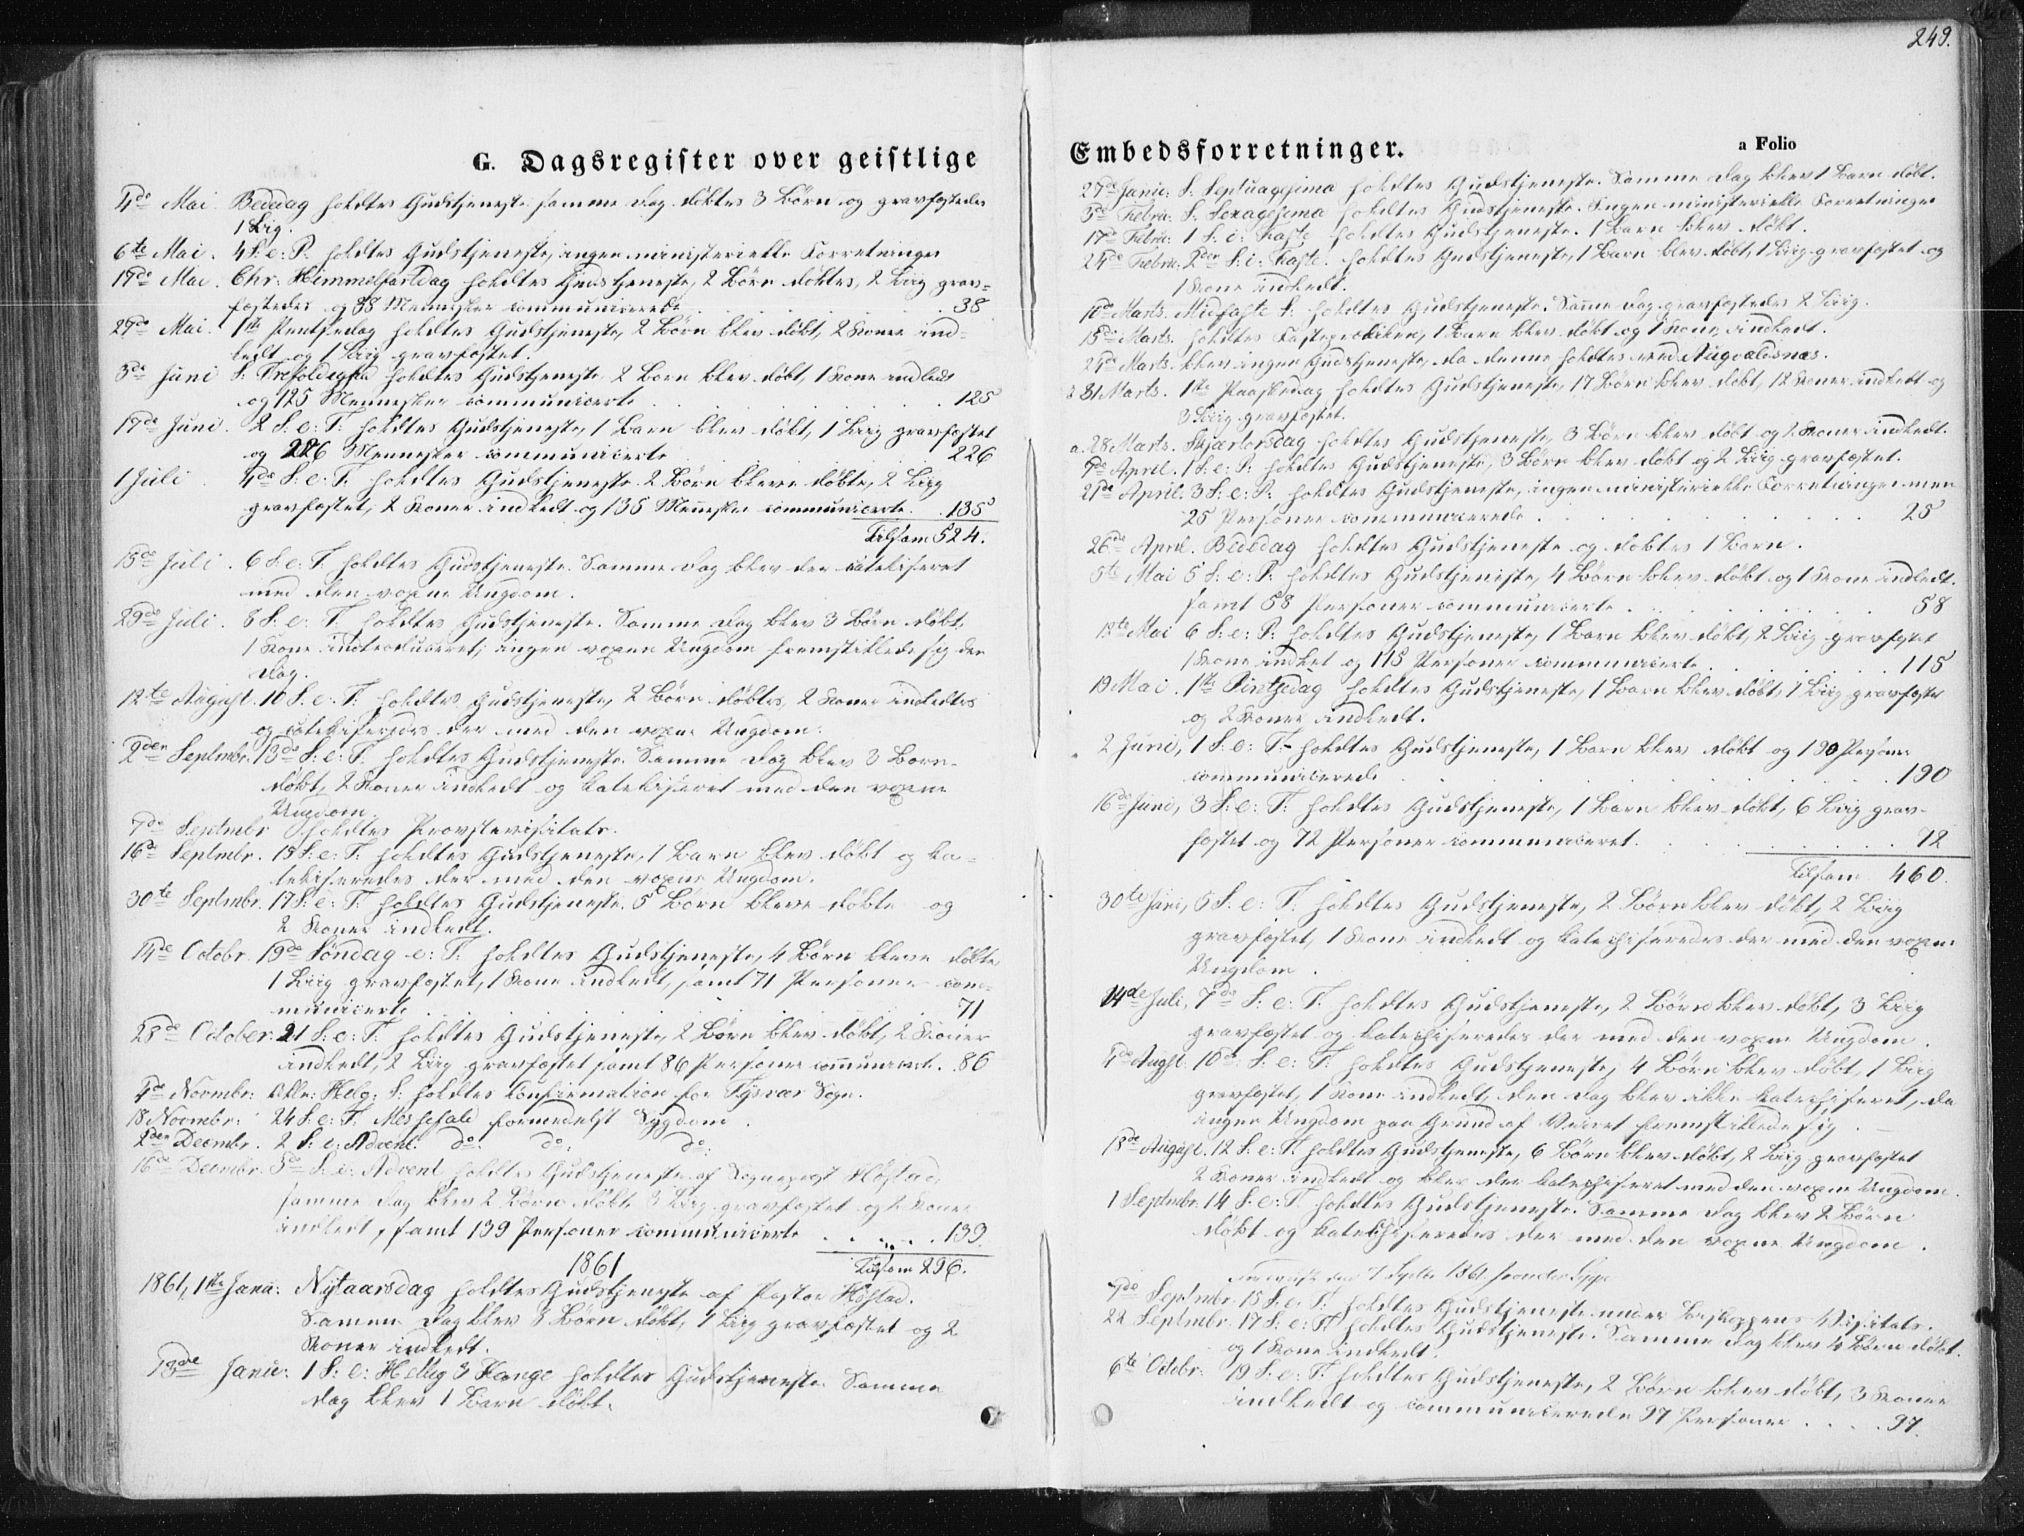 G. Dagsregister over geistlige
4de Mai Bededag holdtes Gudstjeneste samme Dag døbtes 3 Børn og gravfæstedes
1 Liig.
6te Mai. 4 S: e: P: holdtes Gudstjeneste, ingen ministerielle Forretninger
17de Mai. Chr: HimmelfartsDag holdtes Gudstjeneste, 2 Børn døbtes, 2 Liig grav=
fæstedes og 38 Mennesker communicerede . . . 38
27de Mai. 1ste Pintsedag holdtes Gudstjeneste, 2 Børn blev døbt, 2 Koner ind=
ledt og 1 Liig gravfæstet.
3de Juni S: Trefoldighed holdtes Gudstjeneste 2 Børn blev døbt, 1 Kone indledt
og 125 Mennesker communicerte . . . 125
17de Juni. 2 S: e: T: holdtes Gudstjeneste, 1 Barn blev døbt, 1 Liig gravfæstet
og 226 Mennesker communicerte . . . 226
1 Juli 4de S: e: T: holdtes Gudstjeneste. 2 Børn bleve døbte, 2 Liig
gravfæstet, 2 Koner indledt og 135 Mennesker communicerte. . 135
Tilsam 524.
15de Juli. 6 S: e: T. holdtes Gudstjeneste. Samme Dag blev der catekiseret
med den voxne Ungdom.
29de Juli. 8 S: e: T. holdtes Gudstjeneste. Samme Dag blev 3 Børn døbt,
1 Kone introduceret; ingen voxen Ungdom fremstillede sig den
Dag.
12te August. 10 S. e: T: holdtes Gudstjeneste, 2 Børn døbtes, 2 Koner indledtes
og catekiseredes der med den voxne Ungdom.
2den Septmbr. 13de S: e: T: holdtes Gudstjeneste. Samme Dag blev 3 Børn
døbt, 2 Koner indledt og katekiseret med den voxne
Ungdom.
7de Septmbr holdtes Provstevisitats.
16de Septmbr. 15 S: e: T: holdtes Gudstjeneste, 1 Barn blev døbt og ka=
tekiseredes der med den voxne Ungdom.
30te Septmbr. 17 S: e: T: holdtes Gudstjeneste. 5 Børn bleve døbte og
2 Koner indledt.
14de Octobr. 19de Søndag e: T: holdtes Gudstjeneste, 4 Børn bleve døbte
1 Liig gravfæstet, 1 Kone indledt, samt 71 Personer com=
municerte . . . 71
28de October. 21 S: e: T: holdtes Gudstjeneste, 2 Børn blev døbt, 2 Koner
indledt, 2 Liig gravfæstet samt 86 Personer communicert. 86
4de Novmbr: Alle: Helg: S: holdtes Confirmation for Tysvær Sogn.
18 Novmbr: 24 S: e: T: Messefald formedelst Sygdom.
2den Decmbr. 2 S: i: Advent do: do: do:
16de Decmbr. 3de S: i: Advent holdtes Gudstjeneste af Sognepræst Høstad,
samme Dag blev 2 Børn døbt 3 Liig gravfæstet og 2 Koner
indledt, samt 139 Personer communicerte . . . 139.
Tilsam 296.
1861
1861, 1ste Janu: Nytaarsdag holdtes Gudstjeneste af Pastor Høstad.
Samme Dag blev 3 Børn døbt, 1 Liig gravfæstet og 2
Koner indledt.
13de Janu: 1 S: e: Hellig 3 Konge holdtes Gudstjeneste. Samme
Dag blev 1 Barn døbt.
249.
Embedsforretninger.
a Folio
27de Janu: S. Septuagesima holdtes Gudstjeneste. Samme Dag blev 1 Barn døbt.
3de Febru: S. Sexagesima holdtes Gudstjeneste. Ingen ministerielle Forretninger
17de Febru: 1 S: i: Faste holdtes Gudstjeneste. 1 Barn blev døbt.
24de Febru: 2den S: i: Faste. holdtes Gudstjeneste, 1 Barn blev døbt, 1 Liig gravfæstet og
1 Kone indledt.
10de Marts. Midfaste S: holdtes Gudstjeneste. Samme Dag gravfæstedes 2 Liig.
15de Marts. holdtes Fasteprædiken, 1 Barn blev døbt og 1 Kone indledt.
24de Marts. blev ingen Gudstjeneste, da denne holdtes ved Augvaldsnæs.
31 Marts. 1ste Paaskedag holdtes Gudstjeneste, 17 Børn blev døbt, 12 Koner indledt og
3 Liig gravfæstet.
a. 28 Marts. Skjærtorsdag holdtes Gudstjeneste, 3 Børn blev døbt og 2 Koner indledt.
7de April. 1 S: e: P: holdtes Gudstjeneste, 3 Børn blev døbt og 2 Liig gravfæstet.
21de April. 3 S: e: P: holdtes Gudstjeneste, ingen ministerielle Forretninger men
25 Personer communicerede . . . 25
26de April. Bededag holdtes Gudstjeneste og døbtes 1 Barn.
5te Mai 5 S: e: P: holdtes Gudstjeneste, 4 Børn blev døbt og 1 Kone indledt.
samt 58 Personer communicerte . . . 58
12te Mai 6 S: e: P: holdtes Gudstjeneste, 1 Barn blev døbt, 2 Liig gravfæstet
1 Kone indledt og 115 Personer communicerte . . . 115
19 Mai. 1ste Pintsedag holdtes Gudstjeneste, 1 Barn blev døbt, 1 Liig gravfæstet
og 2 Koner indledt.
2 Juni, 1 S: e: T: holdtes Gudstjeneste, 1 Barn blev døbt og 190 Personer
communicerede . . . 190
16de Juni, 3 S: e: T: holdtes Gudstjeneste, 1 Barn blev døbt, 6 Liig grav=
fæstet og 72 Personer communiceret. . . 72
Tilsam 460.
30te Juni, 5 S. e: T. holdtes Gudstjeneste, 2 Børn blev døbt, 2 Liig
gravfæstet, 1 Kone indledt og katechiseredes der med den voxne
Ungdom.
14de Juli, 7de S: e: T: holdtes Gudstjeneste, 2 Børn blev døbt, 3 Liig
gravfæstet og katechiseredes der med den voxne Ungdom.
4de Augst. 10de S: e: T: holdtes Gudstjeneste, 4 Børn blev døbt, 1 Liig
gravfæstet, 1 Kone indledt, den Dag blev ikke katechiseret, da
ingen Ungdom paa Grund af Veiret fremstillede sig.
18de August. 12 S. e: T. holdtes Gudstjeneste, 6 Børn blev døbt, 2 Liig gravfæstet
2 Koner indledt og blev der katechiseret med den voxne Ungdom.
1 Septmbr. 14 S: e: T: holdtes Gudstjeneste. Samme Dag blev 2 Børn
døbt og katechiseredes der med den voxne Ungdom.
den 7 Septbr 1861
7de Septmbr. 15 S: e: T: holdtes Gudstjeneste under Biskoppens Visitats.
22 Septmbr. 17 S: e: T: holdtes Gudstjeneste. Samme Dag blev 4 Børn døbt.
og 1 Kone indledt.
6te Octobr: 19 S: e: T: holdtes Gudstjeneste, 2 Børn blev døbt, 3 Koner
indledt og communicerede 97 Personer . . . 97.